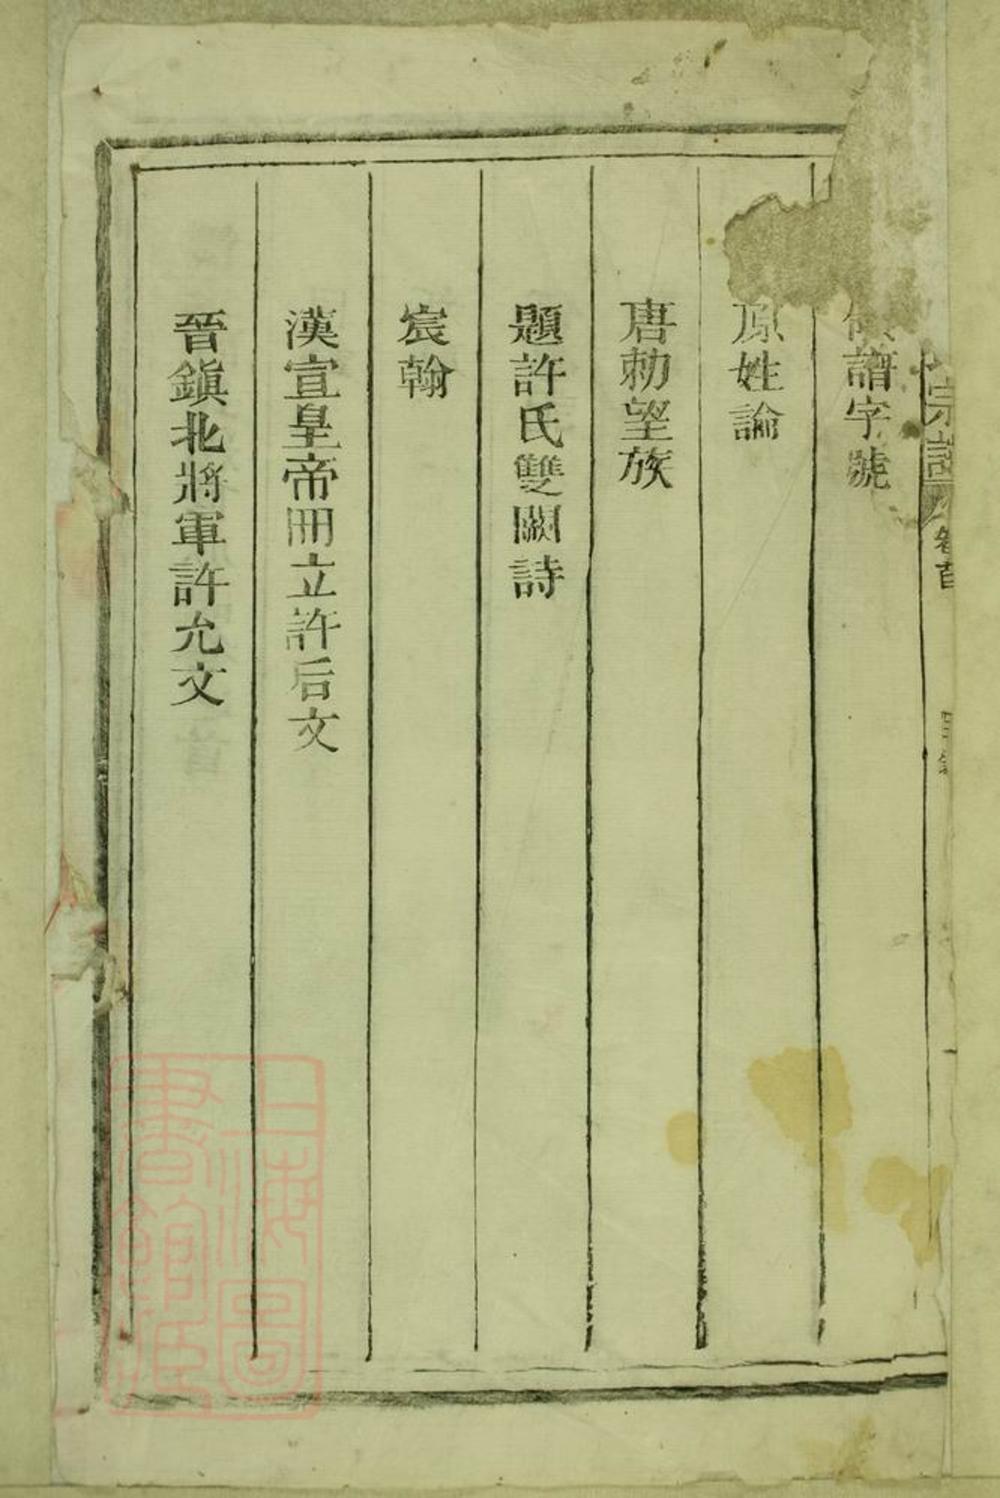 宗譜
卷首
目錄
譜字號
原姓論
唐勅望族
題許氏雙闕詩
宸翰
漢宣皇帝冊立許后文
晉鎭北將軍許允文
上海圖
書館藏